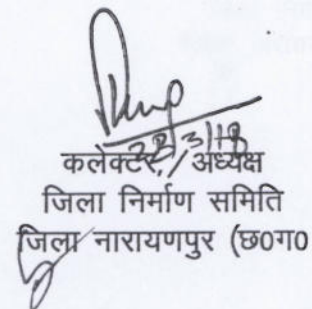 28/3/18
कलेक्टर / अध्यक्ष
जिला निर्माण समिति
जिला नारायणपुर (छ0ग0